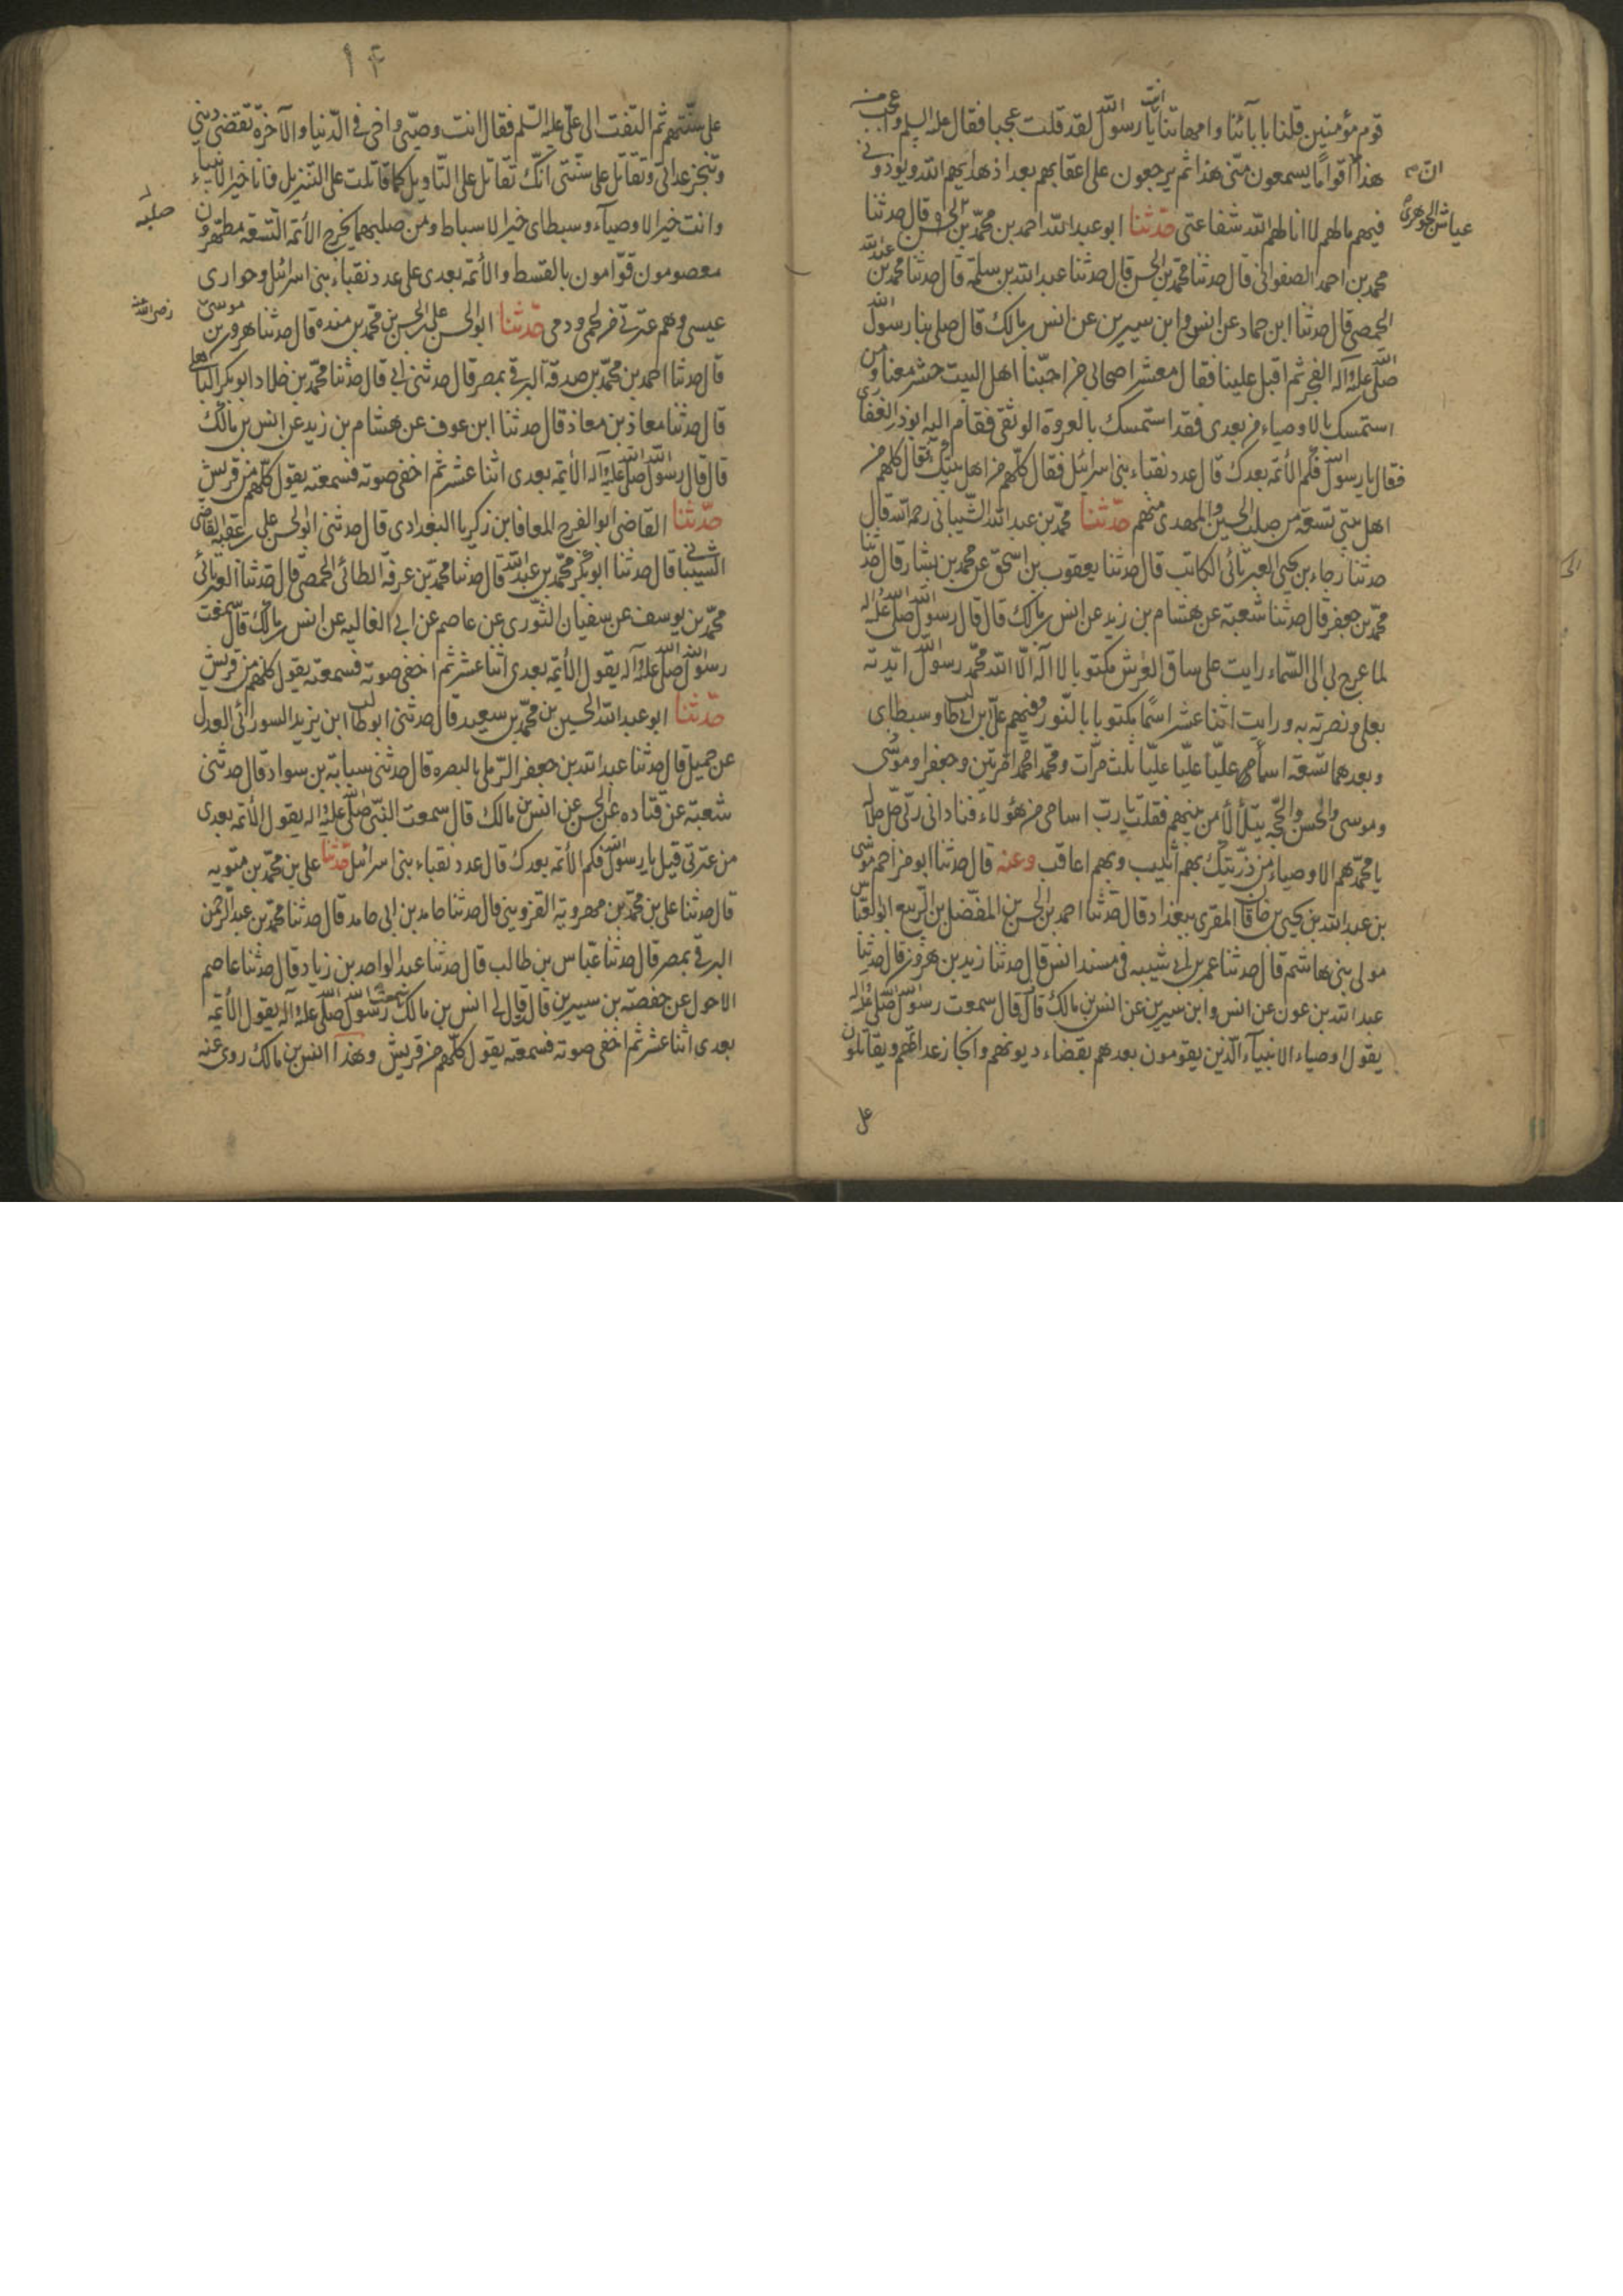 قوم مؤمنين قلنا بابائنا وامهاتنا انت يا رسول الله لقد قلت عجبا فقال عليه السلم واعجب من
هذا ان اقواما يسمعون منّى هذا ثم يرجعون على اعقابهم بعد اذ هداهم الله ويوذونى
فيهم مالهم لا انالهم الله شفاعتى حدّثنا ابو عبد الله احمد بن محمّد بن عياش الجوهرى قال حدثنا
محمد بن احمد الصفوانى قال حدثنا محمد بن الحسن قال حدثنا عبد الله بن سلمة قال حدثنا محمد بن عبد الله
الحمصى قال حدثنا ابن حماد عن انس وابن سيرين عن انس بن مالك قال صلى بنا رسول الله
صلّى الله عليه واله الفجر ثم اقبل علينا فقال معشر اصحابى من احبّنا اهل البيت حشر معنا ومن
استمسك بالاوصياء من بعدى فقد استمسك بالعروة الوثقى فقام اليه ابو ذر الغفارى
فقال يا رسول الله فكم الأئمة بعدك قال عدد نقباء بنى اسرائيل فقال كلّهم من اهل بيتك قال كلهم من
اهل بيتى تسعة من صلب الحسين والمهدى منهم حدّثنا محمّد بن عبد الله الشّيبانى رحمه الله قال
حدثنا رجاء بن يحيى العبرتائى الكاتب قال حدثنا يعقوب بن اسحق عن محمد بن بشار قال حدثنا
محمّد بن جعفر قال حدثنا شعبة عن هشام بن زيد عن انس بن مالك قال قال رسول الله صلى الله عليه واله
لما عرج بى الى السّماء رايت على ساق العرش مكتوبا لا اله الّا الله محمّد رسول الله ايّدته
بعلى ونصرته به ورايت اثنا عشر اسمًا مكتوبا بالنّور وفيهم علىّ بن ابى طالب وسبطاى
وبعدهما تسعة اسمأهم عليّا عليّا عليّا ثلث مرّات ومحمّد امحمّد امرتين وجعفرا وموسى
وموسى والحسن والحجّة يتلألأ من بينهم فقلت يا ربّ اسامى من هؤلاء فنادانى ربّى جلّ جلاله
يا محمّد هم الاوصياء من ذرّيتك بهم اثيب وبهم اعاقب وعنه قال حدثنا ابو مزاحم موسى
بن عبد الله بن يحيى بن خاقان المقرى ببغداد قال حدّثنا احمد بن الحسن بن المفضّل بن الرّبيع ابو العبّاس
مولى بنى هاشم قال حدثنا عمر بن ابى شيبه فى مسند انس قال حدثنا زيد بن هرون قال حدثنا
عبد الله بن عون عن انس وابن سيرين عن انس بن مالك قال قال سمعت رسول الله صلّى الله عليه واله
يقول اوصياء الانبيآء الّذين يقومون بعدهم بقضاء ديونهم وانجاز عداتهم ويقاتلون
على
على سنّتهم ثم التفت الى علىّ عليه السّلم فقال انت وصيّى واخى فى الدّنيا والآخرة تقضى دينى
وتنجز عداتى وتقاتل على سنّتى انّك تقاتل على التّاويل كما قاتلت على التنزيل فانا خير الانبياء
وانت خير الاوصيآء وسبطاى خير الاسباط ومن صلبهما يخرج الأئمة التّسعة مطهّرون
صلبه
معصومون قوّامون بالقسط والأئمة بعدى على عدد نقباء بنى اسرائيل وحوارى
عيسى وهم عترتى من لحمى ودمى حدّثنا ابو الحسن على بن الحسن بن محمّد بن منده قال حدثنا هرون بن موسى
رضى الله عنه
قال حدثنا احمد بن محمّد بن صدقة البرقى بمصر قال حدثنى ابى قال حدثنا محمّد بن خلاد ابو بكر الباهلى
قال حدثنا معاذ بن معاذ قال حدثنا ابن عوف عن هشام بن زيد عن انس بن مالك
قال قال رسول الله صلى الله عليه واله الأيمة بعدى اثنا عشر ثم اخفى صوته فسمعته يقول كلّهم من قريش
حدّثنا القاضى ابو الفرج المعافا بن زكريا البغدادى قال حدثنى ابو الحسن على بن عقبة القاضى
الشيبانى قال حدثنا ابو بكر محمّد بن عبد الله قال حدثنا محمّد بن عرفة الطائى الحمصى قال حدّثنا العبرتائى
محمّد بن يوسف عن سفيان الثّورى عن عاصم عن ابى العاليه عن انس بن مالك قال سمعت
رسول الله صلى الله عليه وآله يقول الأيمّة بعدى اثنا عشر ثم اخفى صوته فسمعته يقول كلهم من قريش
حدّثنا ابو عبد الله الحسين بن محمّد بن سعيد قال حدثنى ابو طالب ابن يزيد السورائى العدل
عن جميل قال حدثنا عبد الله بن جعفر الرّملى بالبصره قال حدثنى سبابة بن سواد قال حدثنى
شعبة عن قتاده عن الحسن عن انس بن مالك قال سمعت النّبى صلّى الله عليه واله يقول الأئمة بعدى
من عترتى قيل يا رسول الله فكم الأئمة بعدك قال عدد نقباء بنى اسرائيل حدّثنا على بن محمّد بن متويه
قال حدثنا على بن محمّد بن مهرويه القزوينى قال حدثنا حامد بن ابى حامد قال حدثنا محمّد بن عبد الرّحمن
البرقى بمصر قال حدثنا عبّاس بن طالب قال حدثنا عبد الواحد بن زياد قال حدثنا عاصم
الاحول عن حفصة بن سيرين قال قال لى انس بن مالك سمعت رسول الله صلّى الله عليه وآله يقول الأيمّة
بعدى اثنا عشر ثم اخفى صوته فسمعته يقول كلّهم من قريش وهذا انس بن مالك روى عنه